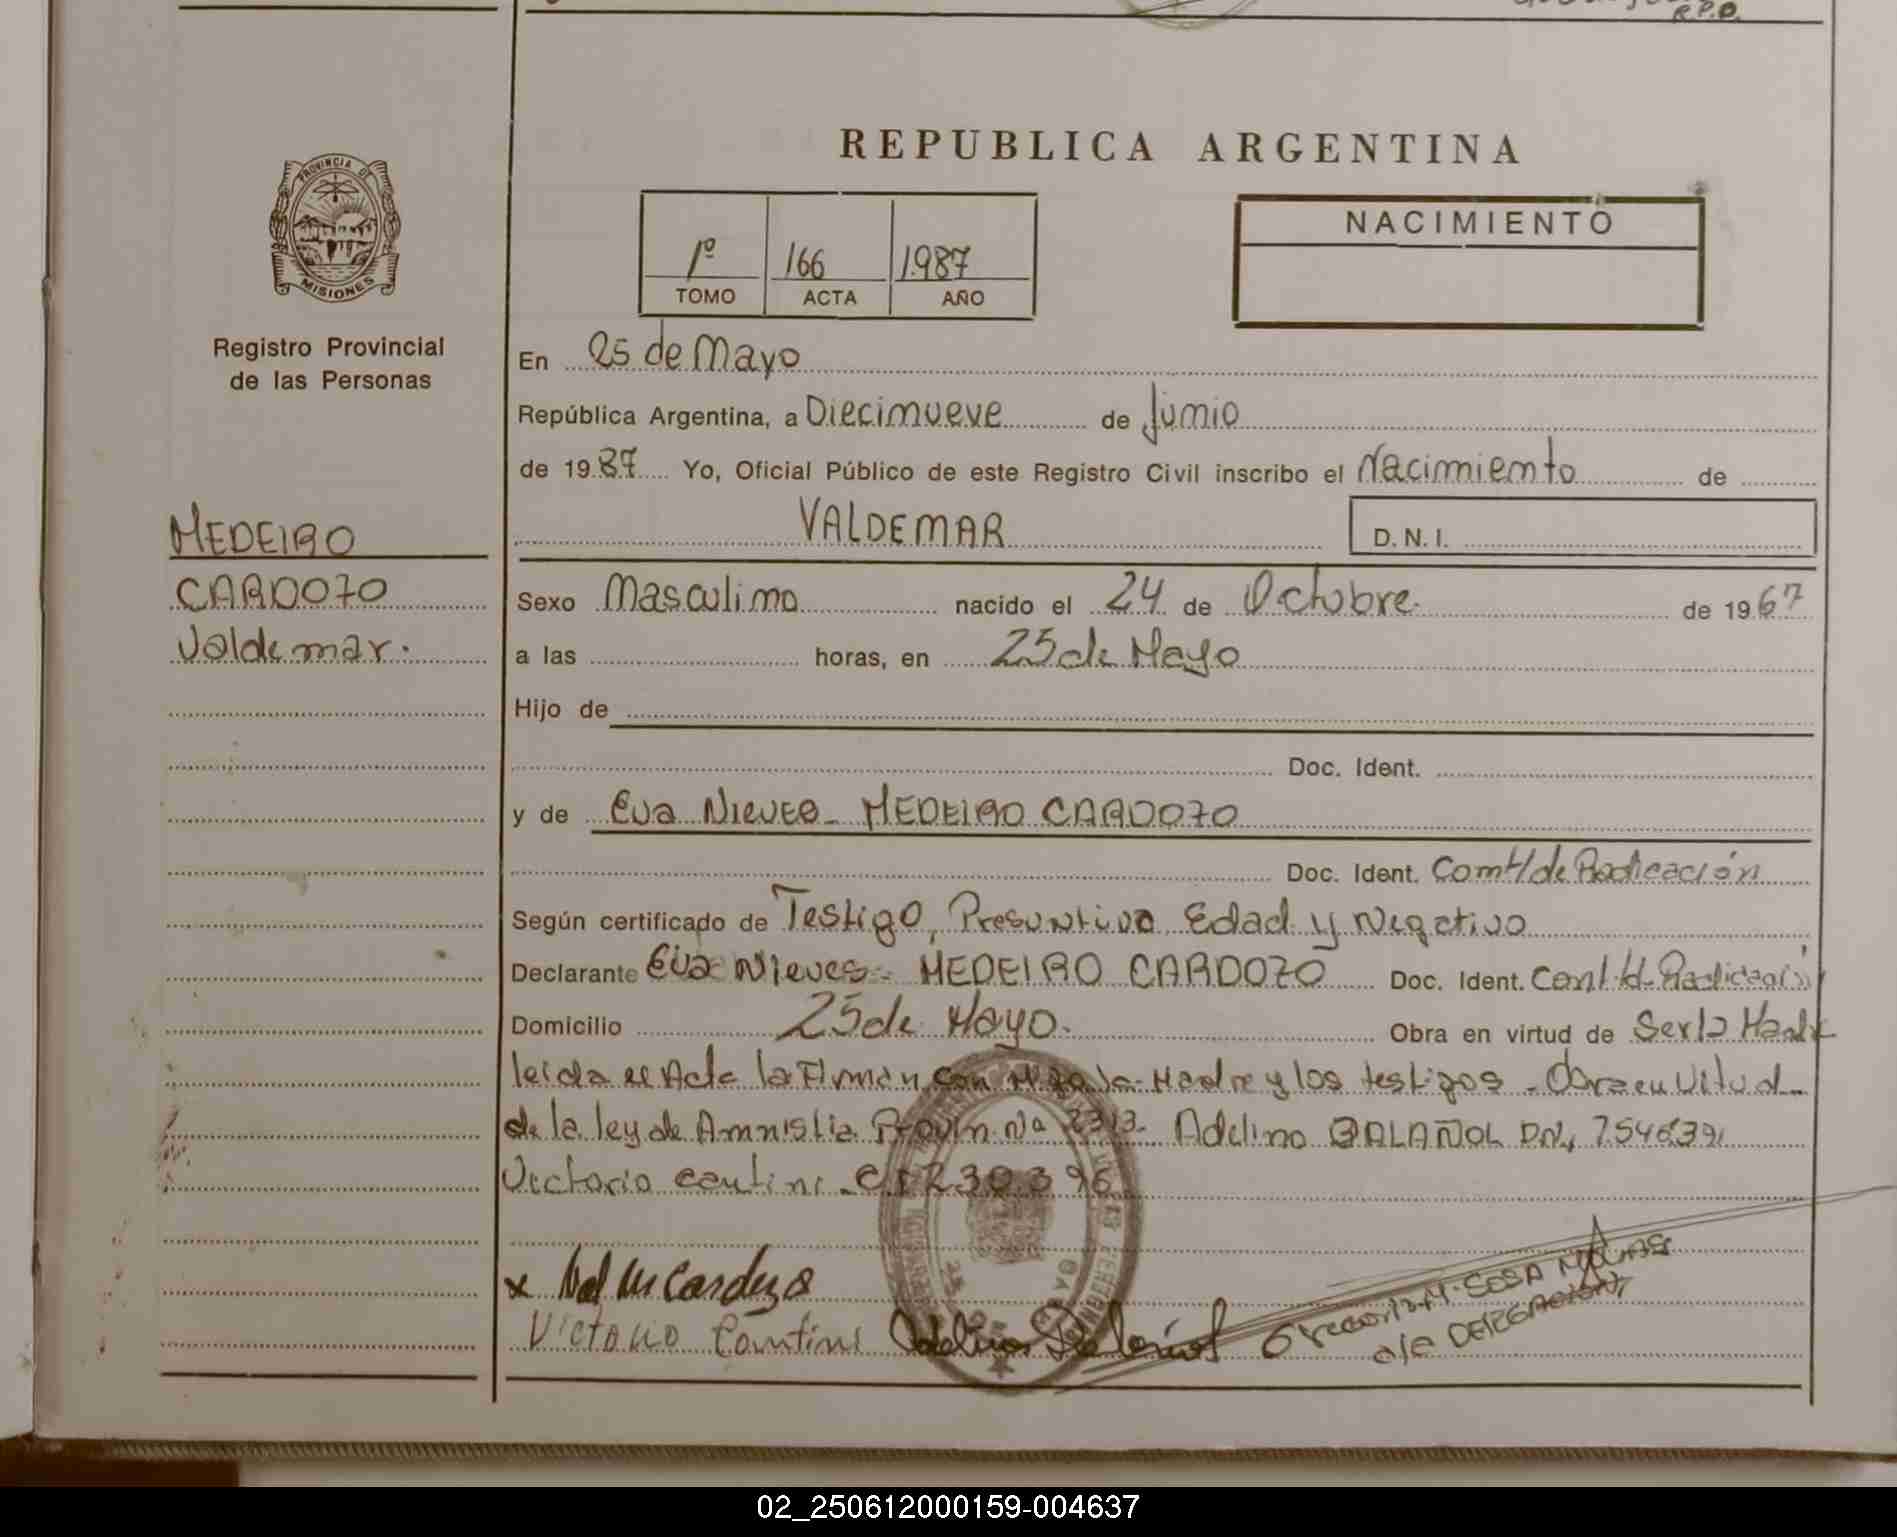 R.P.D.
REPUBLICA ARGENTINA
PROVINCIA DE
MISIONES
Registro Provincial
de las Personas
1º 166 1.987
TOMO ACTA AÑO
NACIMIENTO
En 25 de Mayo
República Argentina, a Diecinueve de Junio
de 19 87 Yo, Oficial Público de este Registro Civil inscribo el Nacimiento de
MEDEIRO
CARDOZO
Valdemar.
VALDEMAR D.N.I.
Sexo Masculino nacido el 24 de Octubre. de 19 67
a las horas, en 25 de Mayo
Hijo de
Doc. Ident.
y de Eva Nieves - MEDEIRO CARDOZO
Doc. Ident. Cont/de Radicación
Según certificado de Testigo, Presuntiva Edad y Negativo
Declarante Eva Nieves - MEDEIRO CARDOZO Doc. Ident. Cont/d- Radicación
Domicilio 25 de Mayo. Obra en virtud de Ser la Madre
leida el Acta la Firman con Migo la Madre y los testigos - Obra en Vitud
de la ley de Amnistia Provin Nº 2313. Adelino BALAÑOL D.N.I 7546391
Victorio Cantini - C.I 230396
x Val m Cardozo
Victorio Cantini Adelino Balañol
SOSA
a/c DELEGACION
02_250612000159-004637